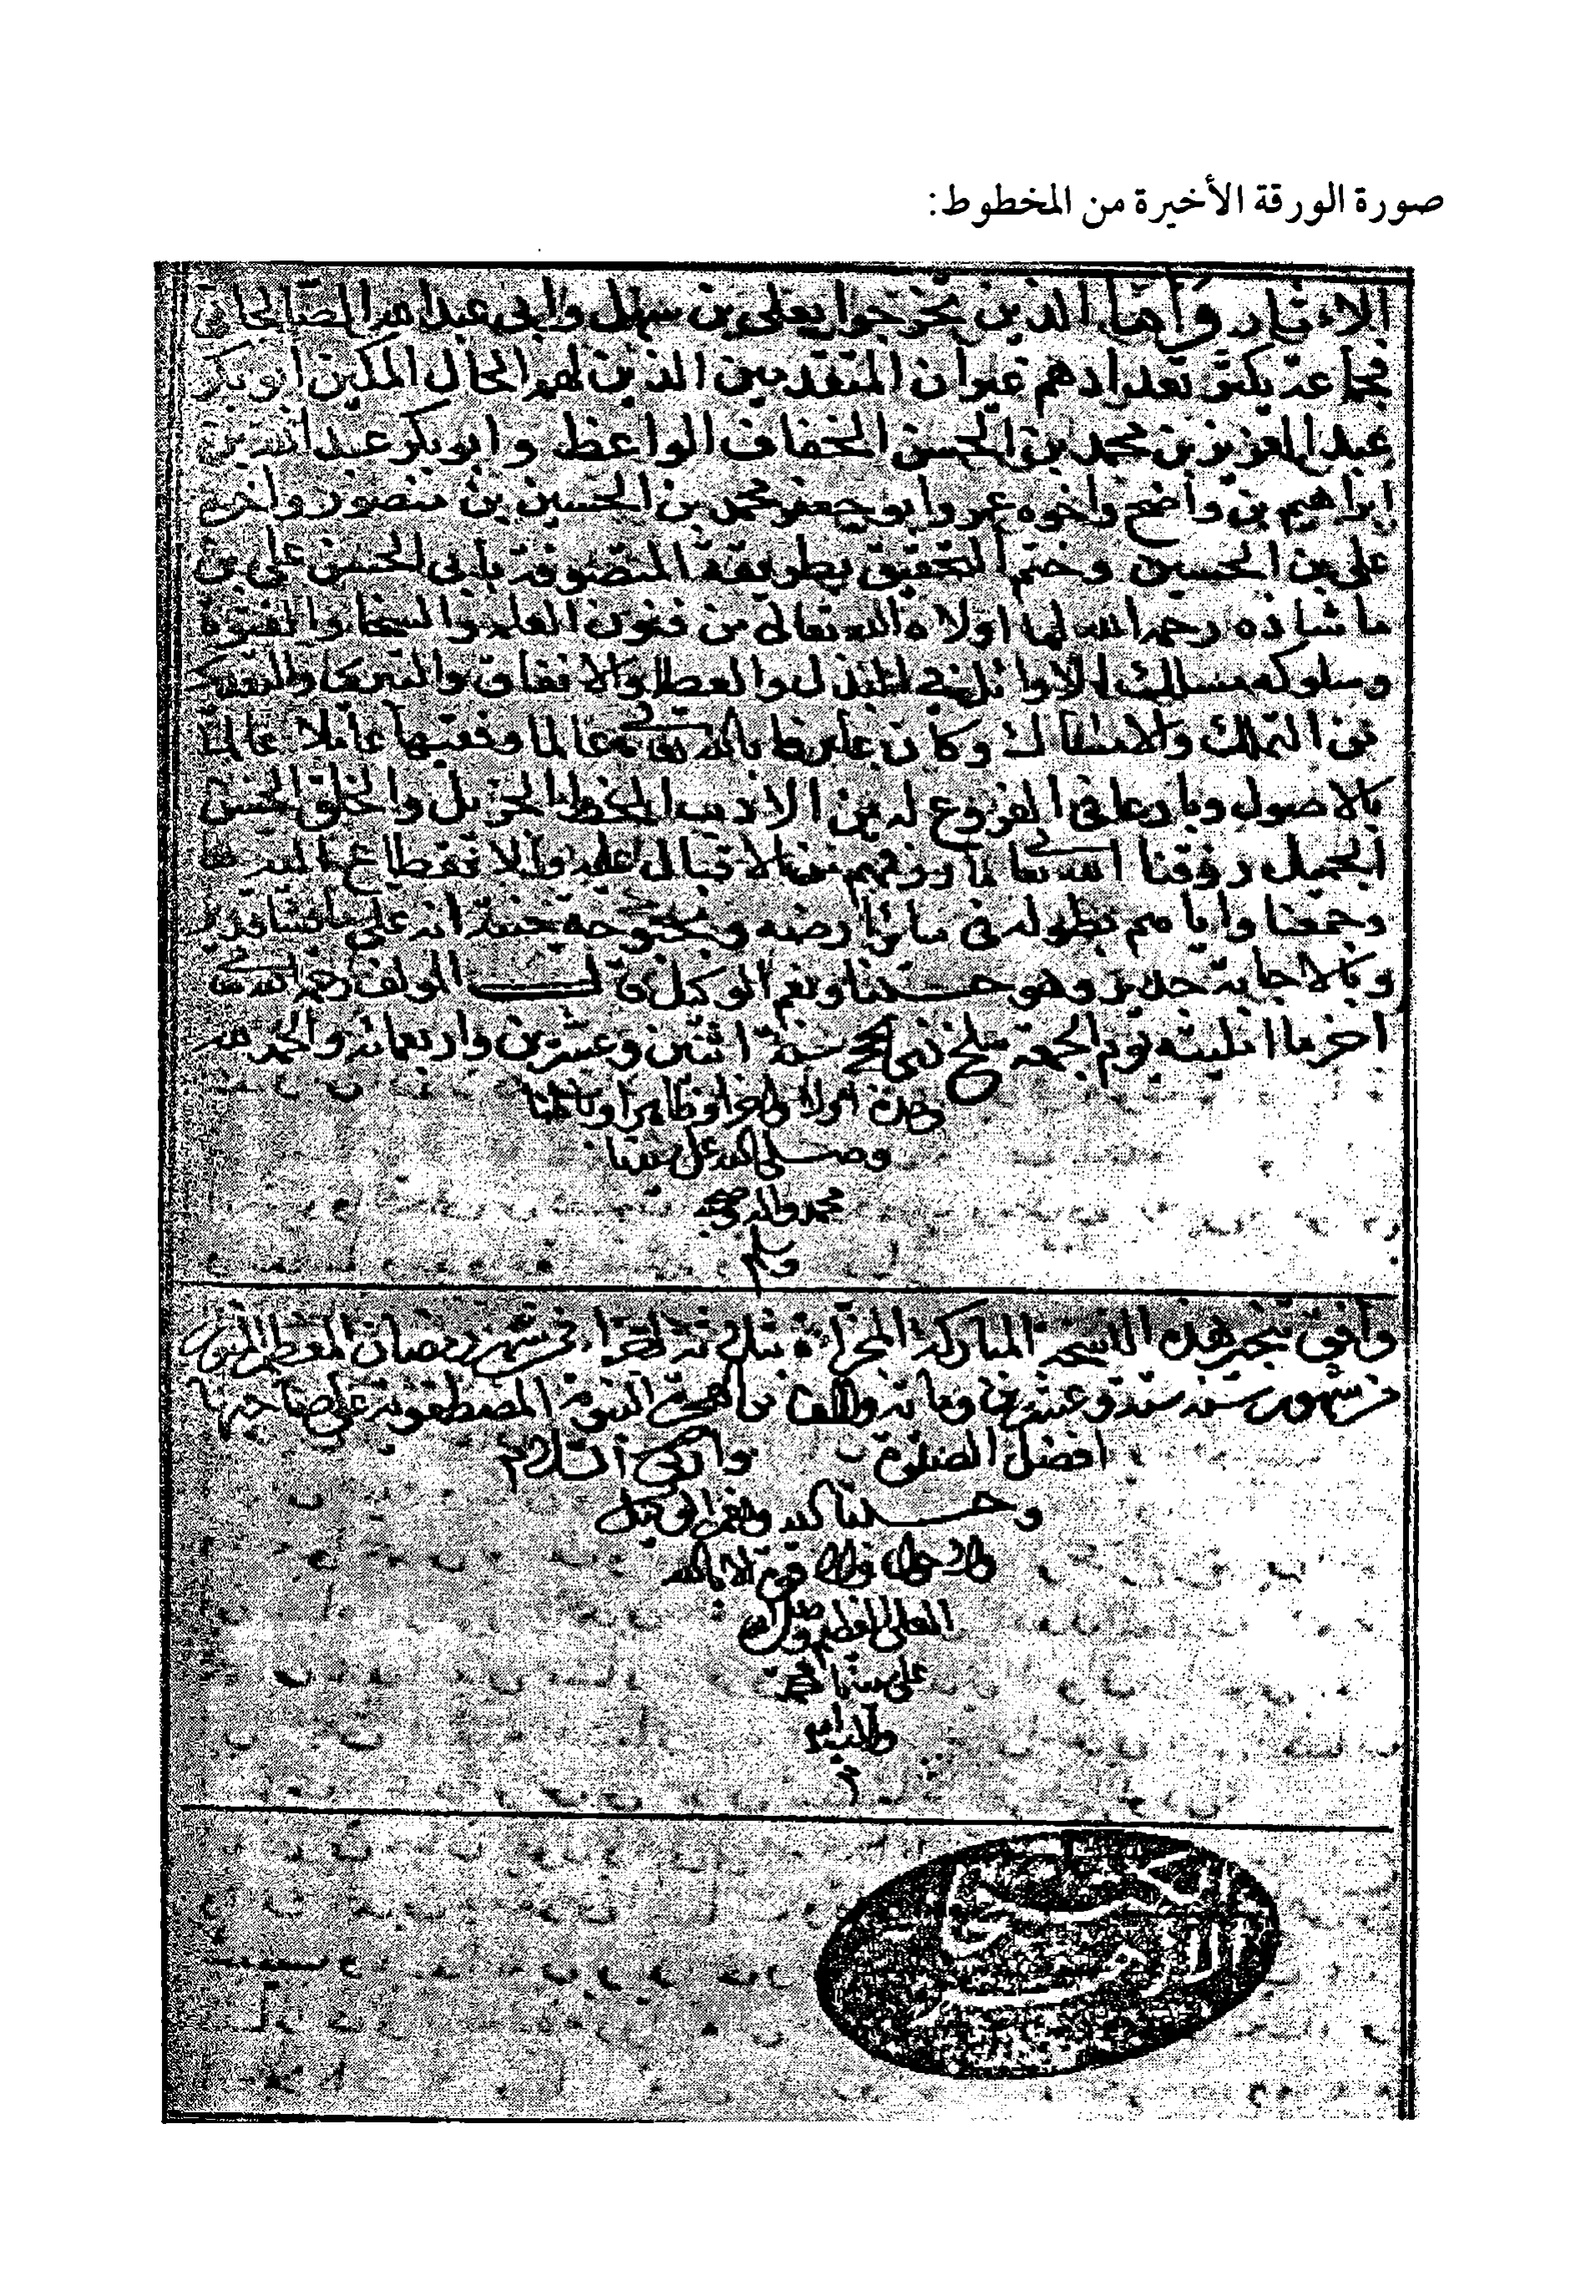 صورة الورقة الأخيرة من المخطوط:
الاءثار وأما الذين تخرجوا بعلي بن سهل وأبي عبد الله الصالحاني
فجماعة يكثر تعدادهم غير ان المتقدمين الذين لهم الحال المكين ابو بكر
عبد العزيز بن محمد بن الحسن الخفاف الواعظ وابو بكر عبد الله بن
ابراهيم بن واضح واخوه عمر وابو جعفر محمد بن الحسين بن منصور واخوه
علي بن الحسين وختم التحقيق بطريقة المتصوفة بابي الحسن علي بن
ماشاذه رحمه الله لما اولاه الله تعالى من فنون العلم والسخا والفتوة
وسلوكه مسلك الاوائل في البذل والعطا والانفاق والتبري والتعري
من التملك والامساك وكان عارفا بالله تعالى عالما وفقيها عاملا عالما
بالاصول وبارعا في الفروع له من الادب الحظ الجزيل والخلق الحسن
الجميل رزقنا الله تعالى ما رزقهم من الاقبال عليه والانقطاع اليه
وجمعنا واياهم بطوله في سائر ارضه وبحبوحة جنته انه على ما يشا قدير
وبالاجابة جدير وهو حسبنا ونعم الوكيل قال المولف رحمه الله تعالى
اخر ما امليته يوم الجمعة سلخ ذي الحجة سنة اثنين وعشرين واربعمائة والحمد لله
وحده اولا واخرا وظاهرا وباطنا
وصلى الله على سيدنا
محمد واله وصحبه
وسلم
وافق تنجيز هذه النسخة المباركة المجزأة بثلاثة اجزاء في شهر رمضان المعظم المنور
من شهور سنة ستة وعشرين ومائة والف من الهجرة النبوية المصطفوية على صاحبها
افضل الصلوة وازكى السلام
وحسبنا الله ونعم الوكيل
ولا حول ولا قوة الا بالله
العلي العظيم وصلى الله
على سيدنا محمد
م